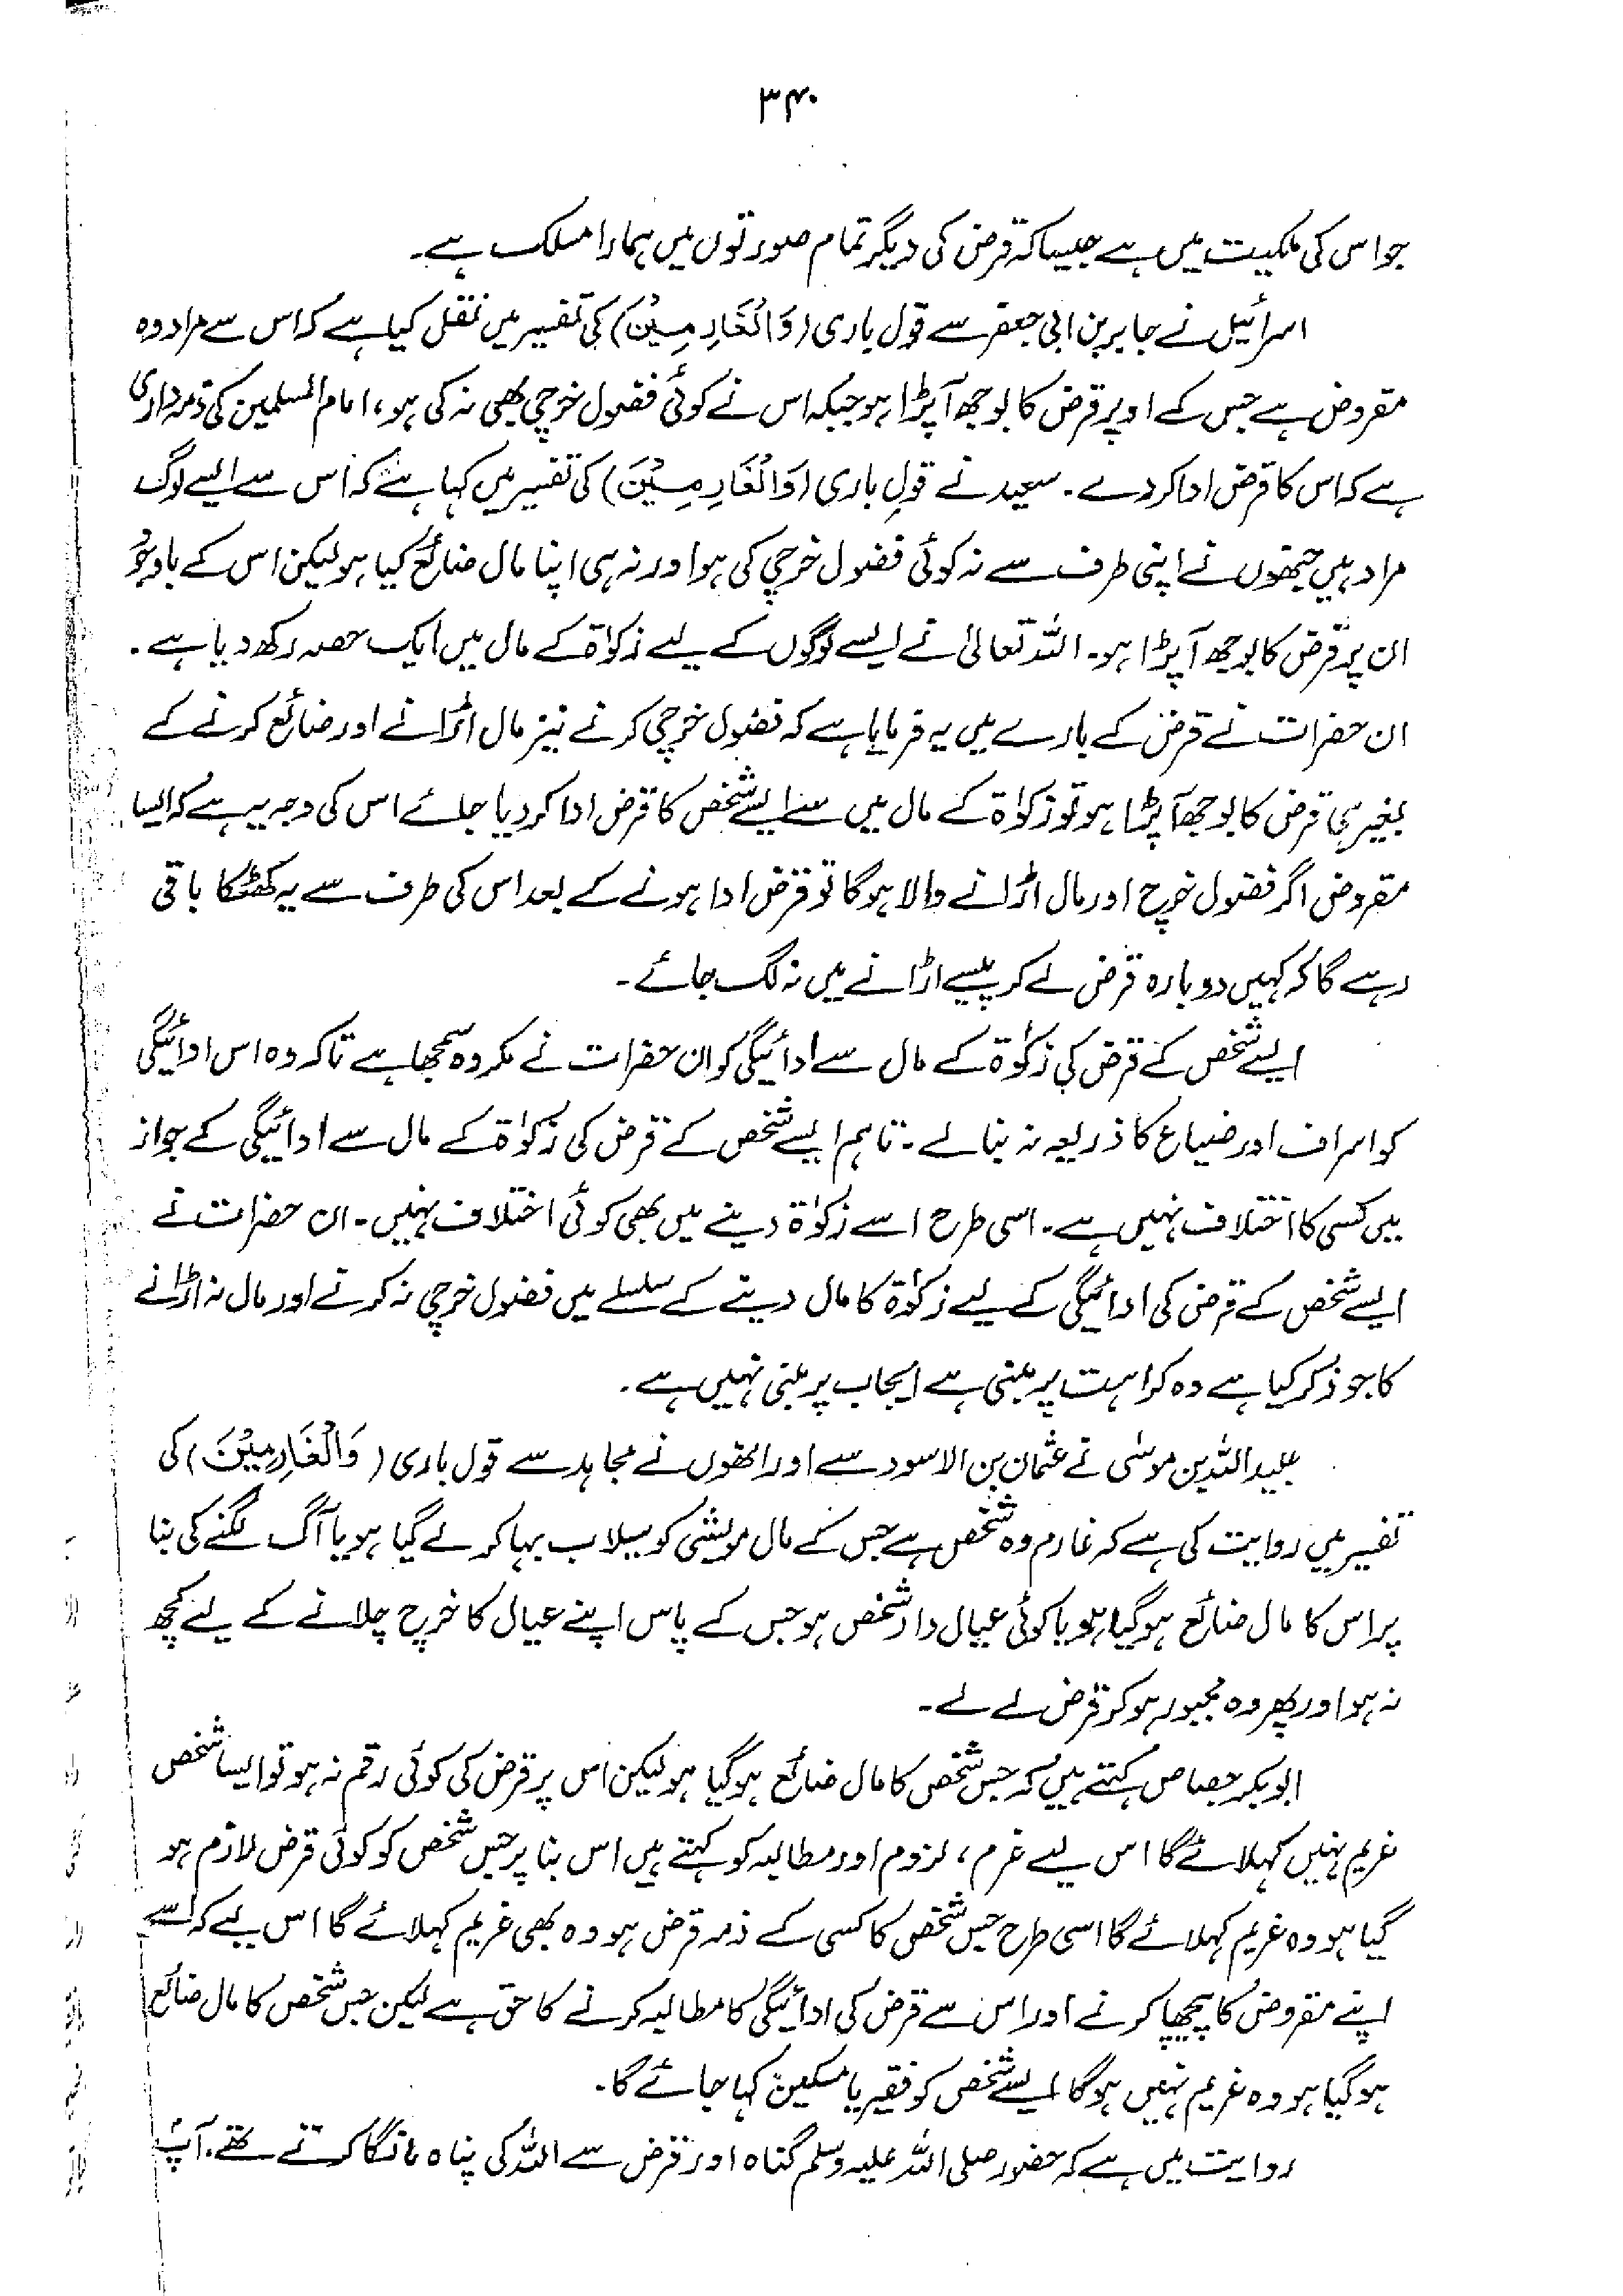 ۳۴۰
جو اس کی ملکیت میں ہے جیسا کہ قرض کی دیگر تمام صورتوں میں ہمارا مسلک ہے۔
اسرائیل نے جابر بن ابی جعفر سے قول باری (وَالْغَارِمِیْنَ) کی تفسیر میں نقل کیا ہے کہ اس سے مراد وہ
مقروض ہے جس کے اوپر قرض کا بوجھ آپڑا ہو جبکہ اس نے کوئی فضول خرچی بھی نہ کی ہو، امام المسلمین کی ذمہ داری
ہے کہ اس کا قرض ادا کردے۔ سعید نے قولِ باری (وَالْغَارِمِیْنَ) کی تفسیر میں کہا ہے کہ اس سے ایسے لوگ
مراد ہیں جنھوں نے اپنی طرف سے نہ کوئی فضول خرچی کی ہو اور نہ ہی اپنا مال ضائع کیا ہو لیکن اس کے باوجود
ان پر قرض کا بوجھ آپڑا ہو۔ اللہ تعالیٰ نے ایسے لوگوں کے لیے زکوٰۃ کے مال میں ایک حصہ رکھ دیا ہے۔
ان حضرات نے قرض کے بارے میں یہ فرمایا ہے کہ فضول خرچی کرنے نیز مال اڑانے اور ضائع کرنے کے
بغیر ہی قرض کا بوجھ آپڑا ہو تو زکوٰۃ کے مال میں سے ایسے شخص کا قرض ادا کر دیا جائے اس کی وجہ یہ ہے کہ ایسا
مقروض اگر فضول خرچ اور مال اڑانے والا ہوگا تو قرض ادا ہونے کے بعد اس کی طرف سے یہ کھٹکا باقی
رہے گا کہ کہیں دوبارہ قرض لے کر پیسے اڑانے میں نہ لگ جائے۔
ایسے شخص کے قرض کی زکوٰۃ کے مال سے ادائیگی کو ان حضرات نے مکروہ سمجھا ہے تاکہ وہ اس ادائیگی
کو اسراف اور ضیاع کا ذریعہ نہ بنالے۔ تاہم ایسے شخص کے قرض کی زکوٰۃ کے مال سے ادائیگی کے جواز
میں کسی کا اختلاف نہیں ہے۔ اسی طرح اسے زکوٰۃ دینے میں بھی کوئی اختلاف نہیں۔ ان حضرات نے
ایسے شخص کے قرض کی ادائیگی کے لیے زکوٰۃ کا مال دینے کے سلسلے میں فضول خرچی نہ کرنے اور مال نہ اڑانے
کا جو ذکر کیا ہے وہ کراہت پر مبنی ہے ایجاب پر مبنی نہیں ہے۔
عبید اللہ بن موسیٰ نے عثمان بن الاسود سے اور انھوں نے مجاہد سے قول باری (وَالْغَارِمِیْنَ) کی
تفسیر میں روایت کی ہے کہ غارم وہ شخص ہے جس کے مال مویشی کو سیلاب بہا کر لے گیا ہو یا آگ لگنے کی بنا
پر اس کا مال ضائع ہو گیا ہو یا کوئی عیال دار شخص ہو جس کے پاس اپنے عیال کا خرچ چلانے کے لیے کچھ
نہ ہو اور پھر وہ مجبور ہو کر قرض لے لے۔
ابوبکر جصاص کہتے ہیں کہ جس شخص کا مال ضائع ہو گیا ہو لیکن اس پر قرض کی کوئی رقم نہ ہو تو ایسا شخص
غریم نہیں کہلائے گا اس لیے غرم، لزوم اور مطالبہ کو کہتے ہیں اس بنا پر جس شخص کو کوئی قرض لازم ہو
گیا ہو وہ غریم کہلائے گا اسی طرح جس شخص کا کسی کے ذمہ قرض ہو وہ بھی غریم کہلائے گا اس لیے کہ اسے
اپنے مقروض کا پیچھا کرنے اور اس سے قرض کی ادائیگی کا مطالبہ کرنے کا حق ہے لیکن جس شخص کا مال ضائع
ہو گیا ہو وہ غریم نہیں ہوگا ایسے شخص کو فقیر یا مسکین کہا جائے گا۔
روایت میں ہے کہ حضور صلی اللہ علیہ وسلم گناہ اور قرض سے اللہ کی پناہ مانگا کرتے تھے۔ آپؐ